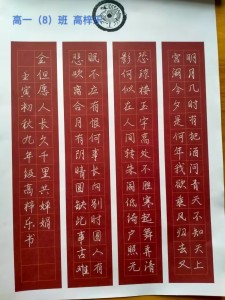 高一（8）班 高梓
明月几时有把酒问青天不知天上
宫阙今夕是何年我欲乘风归去又
恐琼楼玉宇高处不胜寒起舞弄清
影何似在人间转朱阁低绮户照无
眠不应有恨何事长向别时圆人有
悲欢离合月有阴晴圆缺此事古难
全但愿人长久千里共婵娟
壬寅初秋九年级高梓乐书